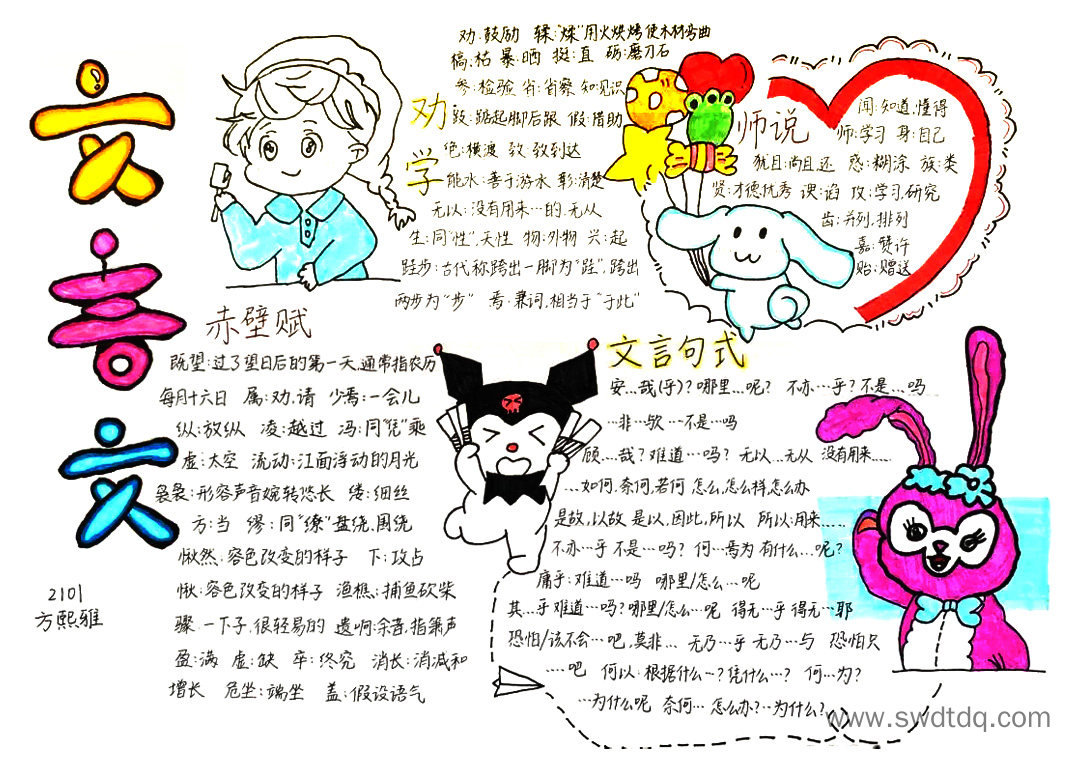 文言文
2101
方熙雅
劝学
劝:鼓励 輮:“煣”用火烘烤使木材弯曲
槁:枯 暴:晒 挺:直 砺:磨刀石
参:检验 省:省察 知:见识
跂:踮起脚后跟 假:借助
绝:横渡 致:致到达
能水:善于游水 彰:清楚
无以:没有用来…的,无从
生:同“性”,天性 物:外物 兴:起
跬步:古代称跨出一脚为“跬”,跨出
两步为“步” 焉:兼词,相当于“于此”
师说
闻:知道,懂得
师:学习 身:自己
犹且:尚且,还 惑:糊涂 族:类
贤:才德优秀 谀:谄 攻:学习,研究
齿:并列,排列
嘉:赞许
贻:赠送
赤壁赋
既望:过了望日后的第一天,通常指农历
每月十六日 属:劝,请 少焉:一会儿
纵:放纵 凌:越过 冯:同“凭”乘
虚:太空 流动:江面浮动的月光
袅袅:形容声音婉转悠长 缕:细丝
方:当 缪:同“缭”盘绕,围绕
愀然:容色改变的样子 下:攻占
愀:容色改变的样子 渔樵:捕鱼砍柴
骤:一下子,很轻易的 遗响:余音,指箫声
盈:满 虚:缺 卒:终究 消长:消减和
增长 危坐:端坐 盖:假设语气
文言句式
安…哉(乎)?哪里…呢? 不亦…乎?不是…吗
…非…欤…不是…吗
顾…哉?难道…吗? 无以…无从 没有用来……
…如何,奈何,若何 怎么,怎么样,怎么办
是故,以故 是以,因此,所以 所以:用来……
不亦…乎 不是…吗? 何…焉为 有什么…呢?
庸乎:难道…吗 哪里/怎么…呢
其…乎难道…吗?哪里/怎么…呢 得无…乎得无…耶
恐怕/该不会…吧,莫非… 无乃…乎 无乃…与 恐怕只
…吧 何以:根据什么…?凭什么…? 何…为?
…为什么呢 奈何…怎么办?…为什么?
www.swdtdq.com